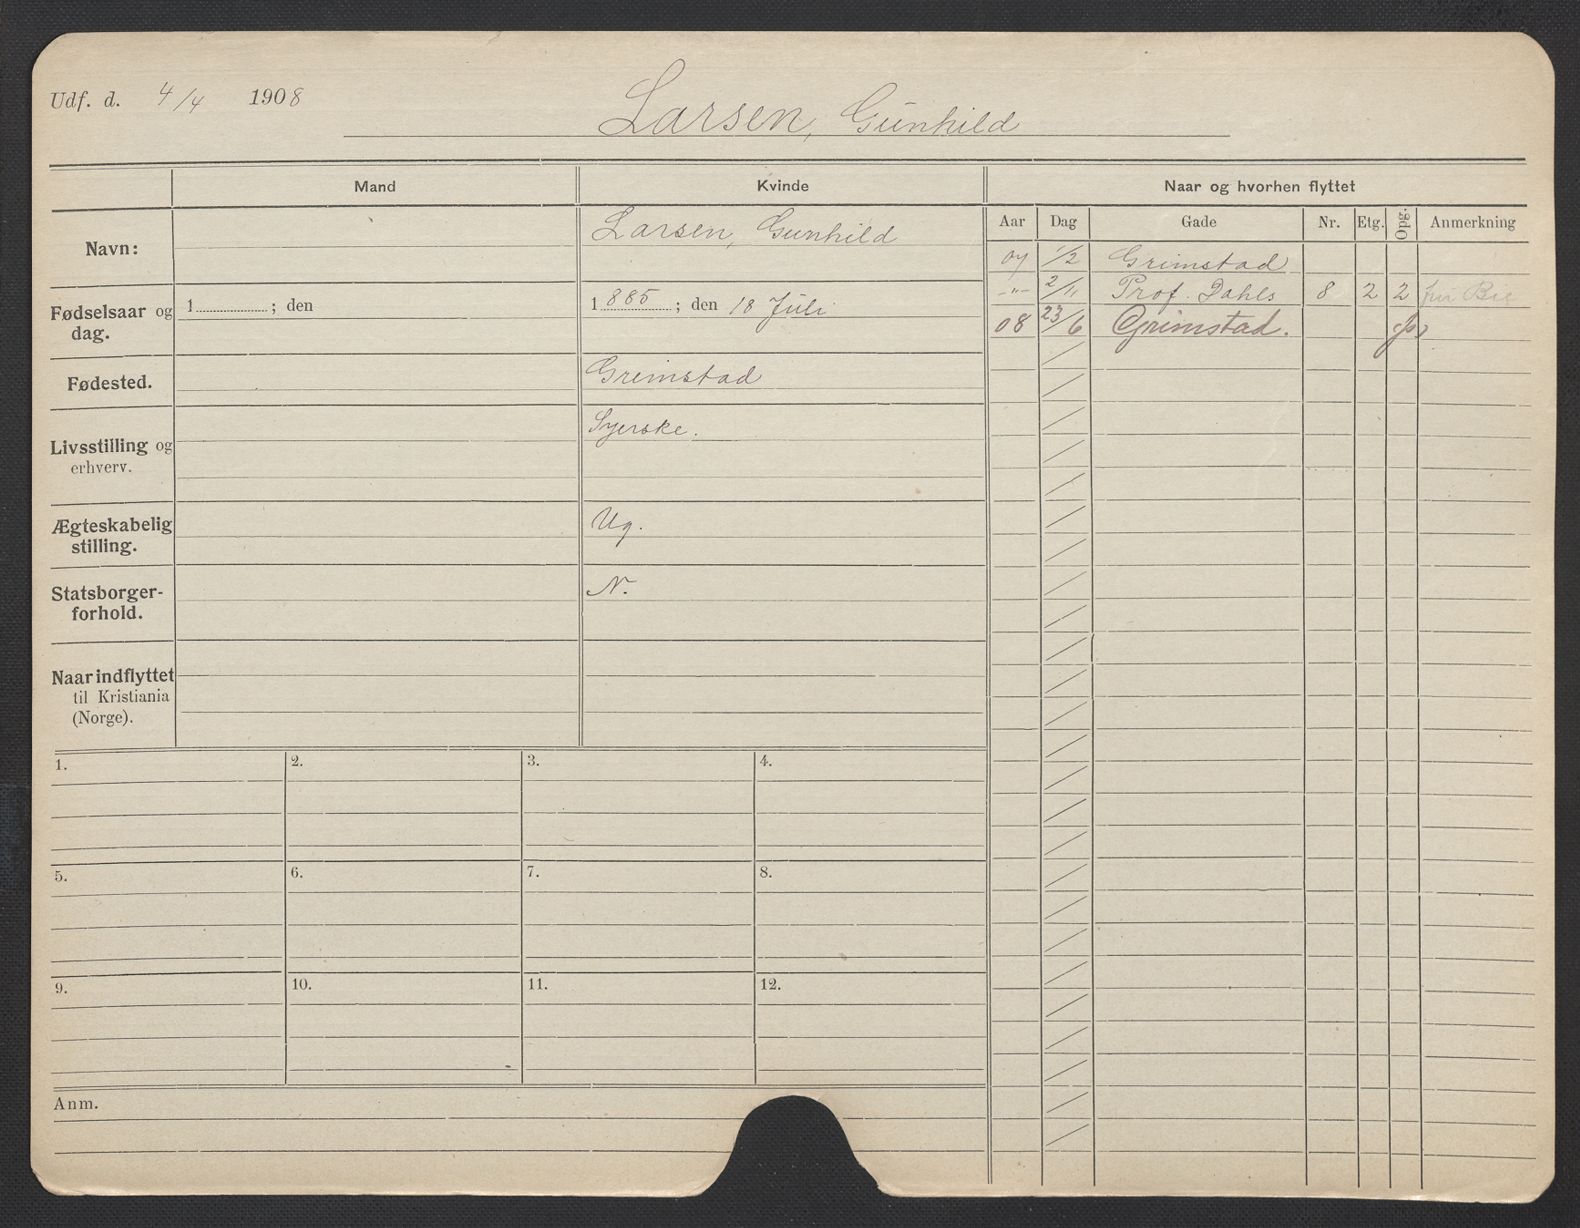 Udf. d. 4/4 1908
Larsen, Gunhild
Mand Kvinde Naar og hvorhen flyttet
Aar Dag Gade Nr. Etg. Opg. Anmerkning
Navn: Larsen, Gunhild
07 1/2 Grimstad
-"- 2/11 Prof. Dahls 8 2 2
08 23/6 Grimstad.
Fødselsaar og dag. 1 ; den 1885 ; den 18 Juli
Fødested. Grimstad
Livsstilling og
erhverv.
Syerske.
Ægteskabelig
stilling.
Ug.
Statsborger-
forhold.
N.
Naar indflyttet
til Kristiania
(Norge).
1. 2. 3. 4.
5. 6. 7. 8.
9. 10. 11. 12.
Anm.